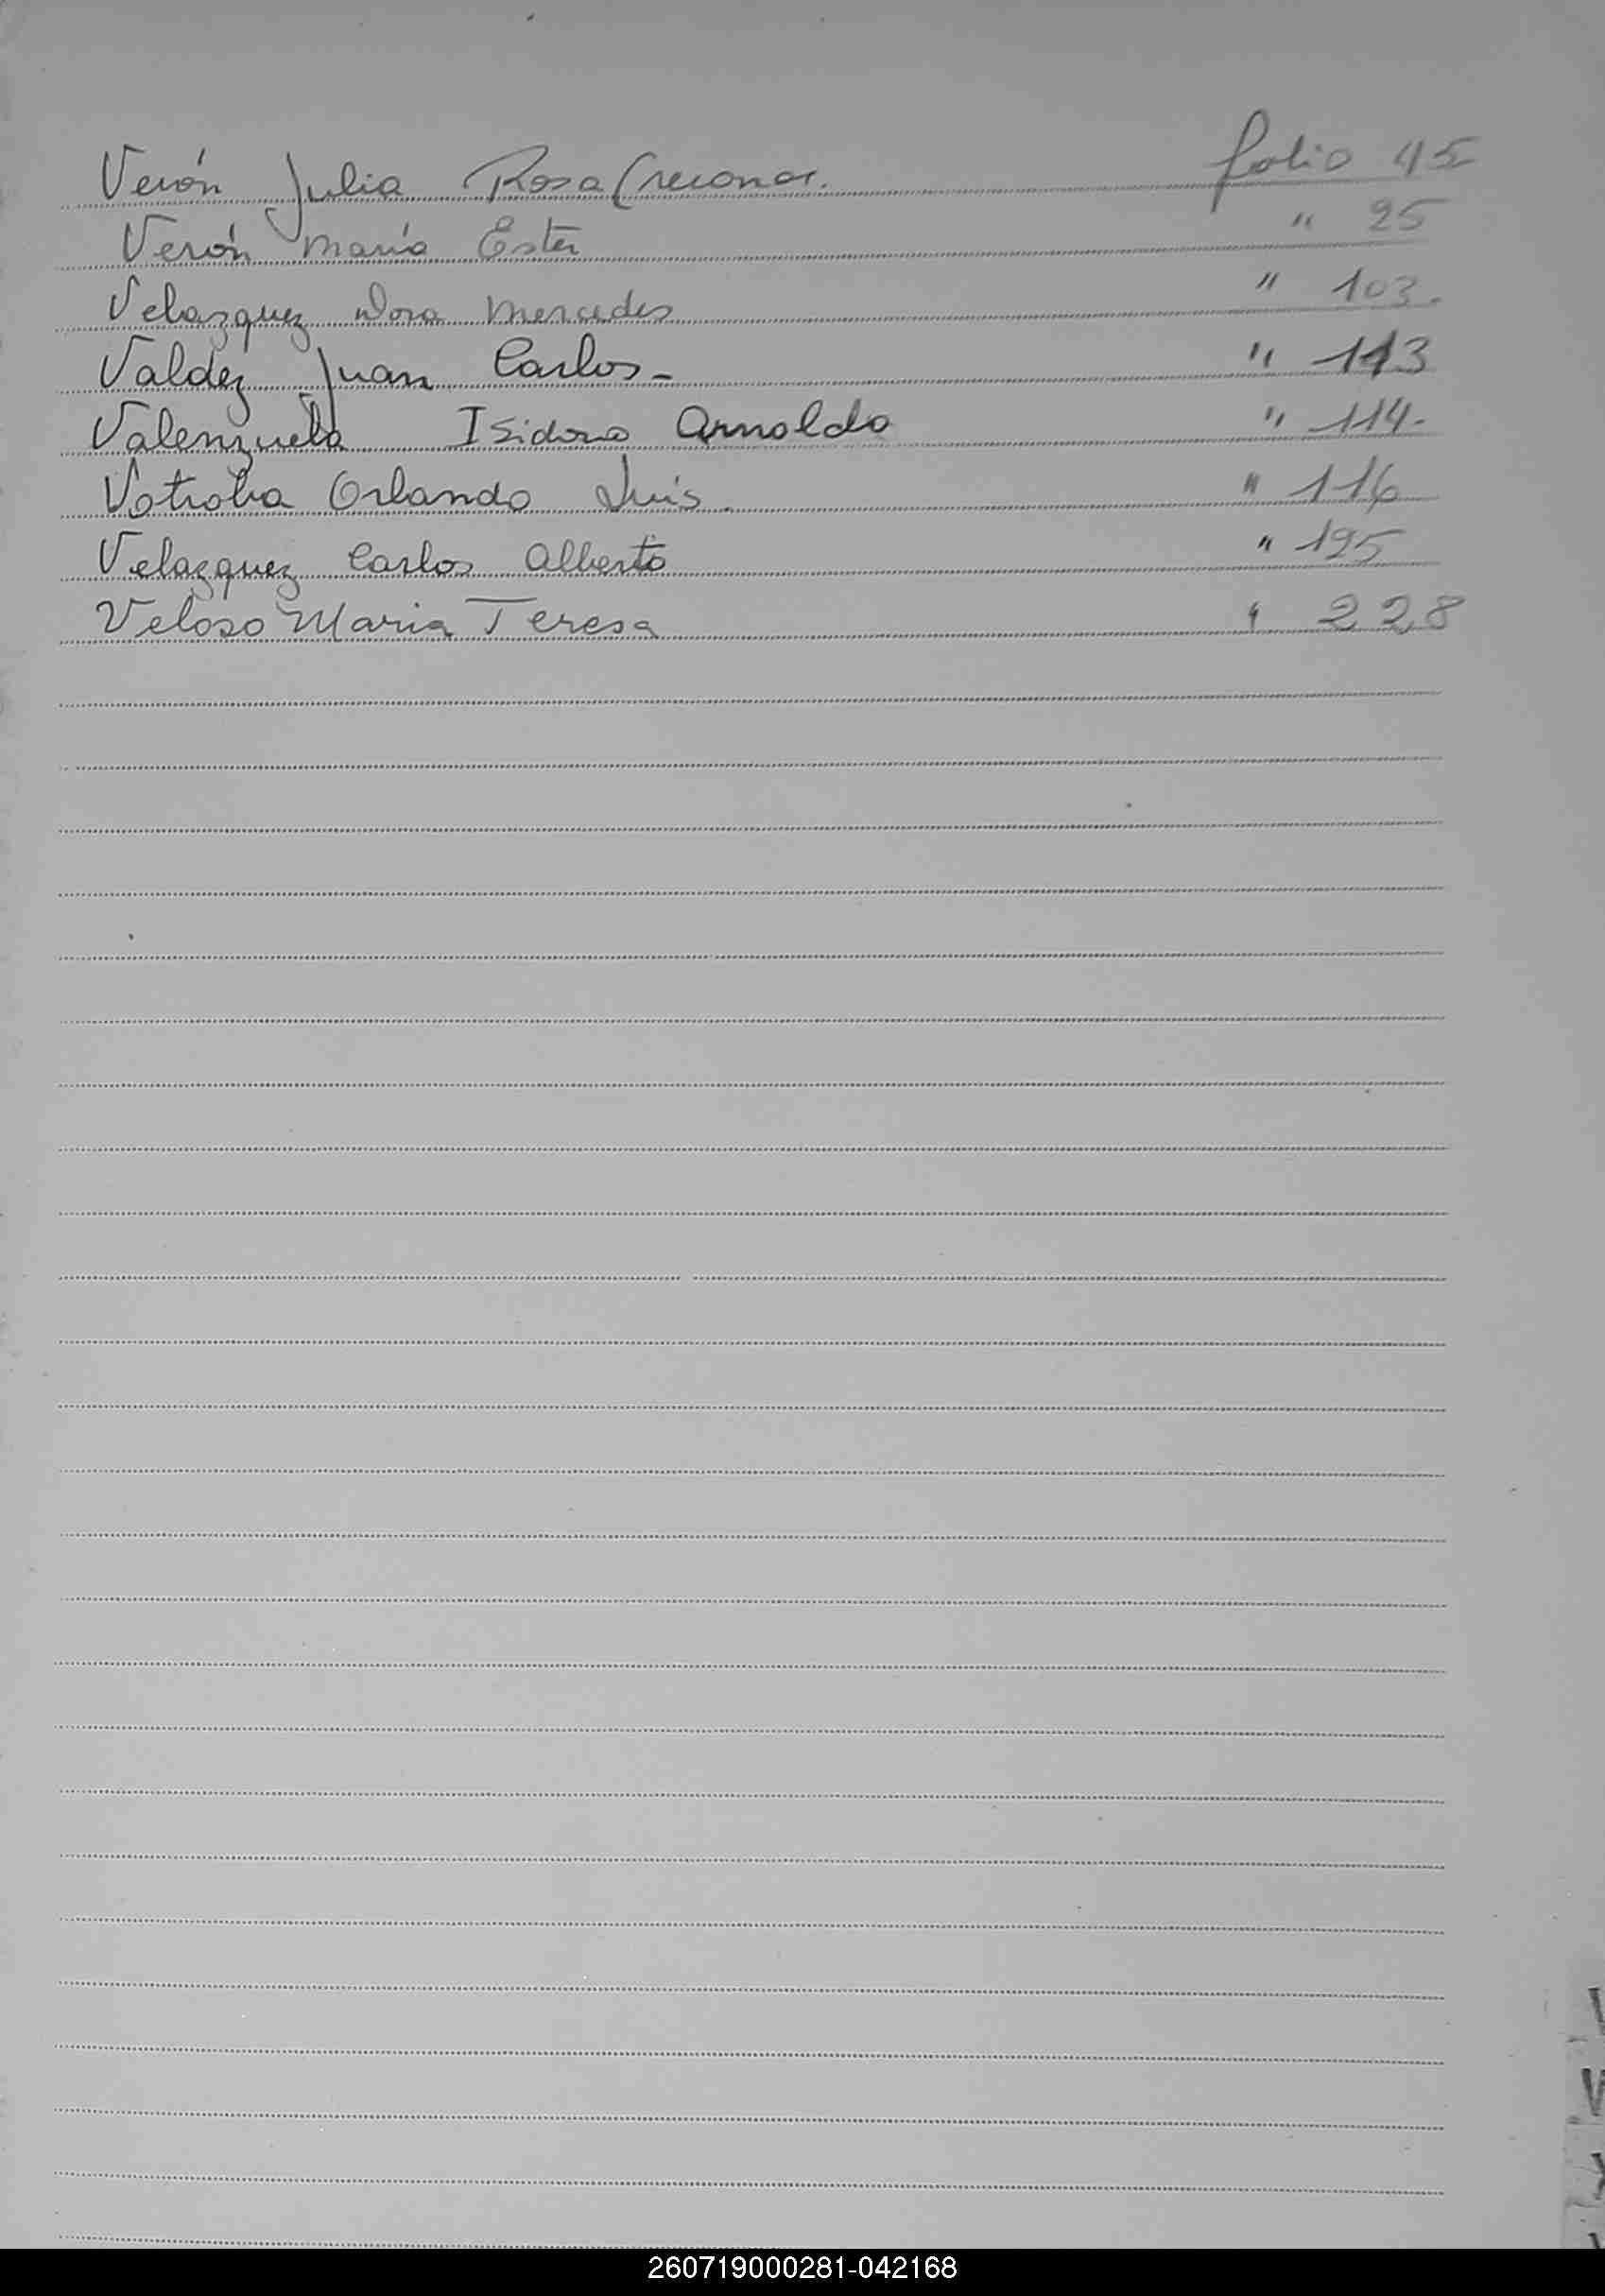 Verón Julia Rosa (reconoc. folio 45
Verón María Ester " 25
Velazquez Dora Mercedes " 103.
Valdéz Juan Carlos - " 113
Valenzuela Isidoro Arnoldo " 114.
Votroba Orlando Luis. " 116
Velazquez Carlos Alberto " 195
Veloso Maria Teresa " 228
V
260719000281-042168